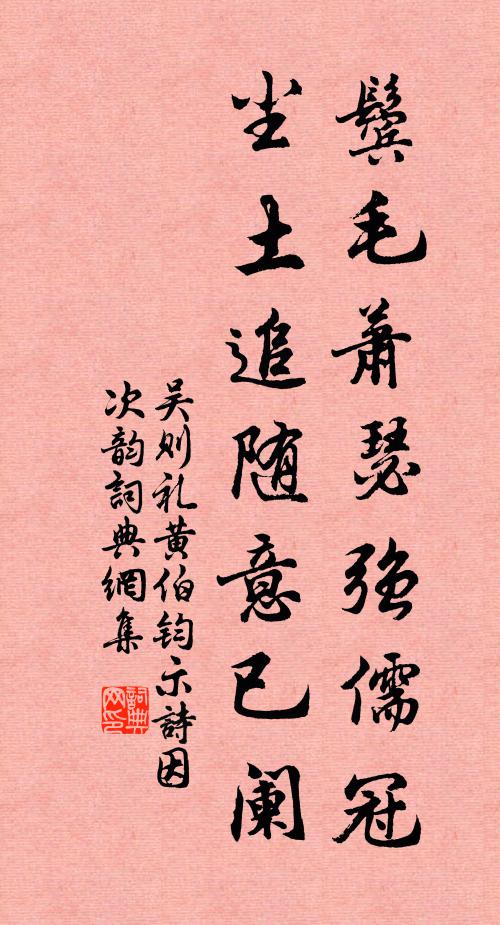 鬓毛萧瑟强儒冠
尘土追随意已阑
吴则礼黄伯钧示诗因
次韵词典网集
词典网印